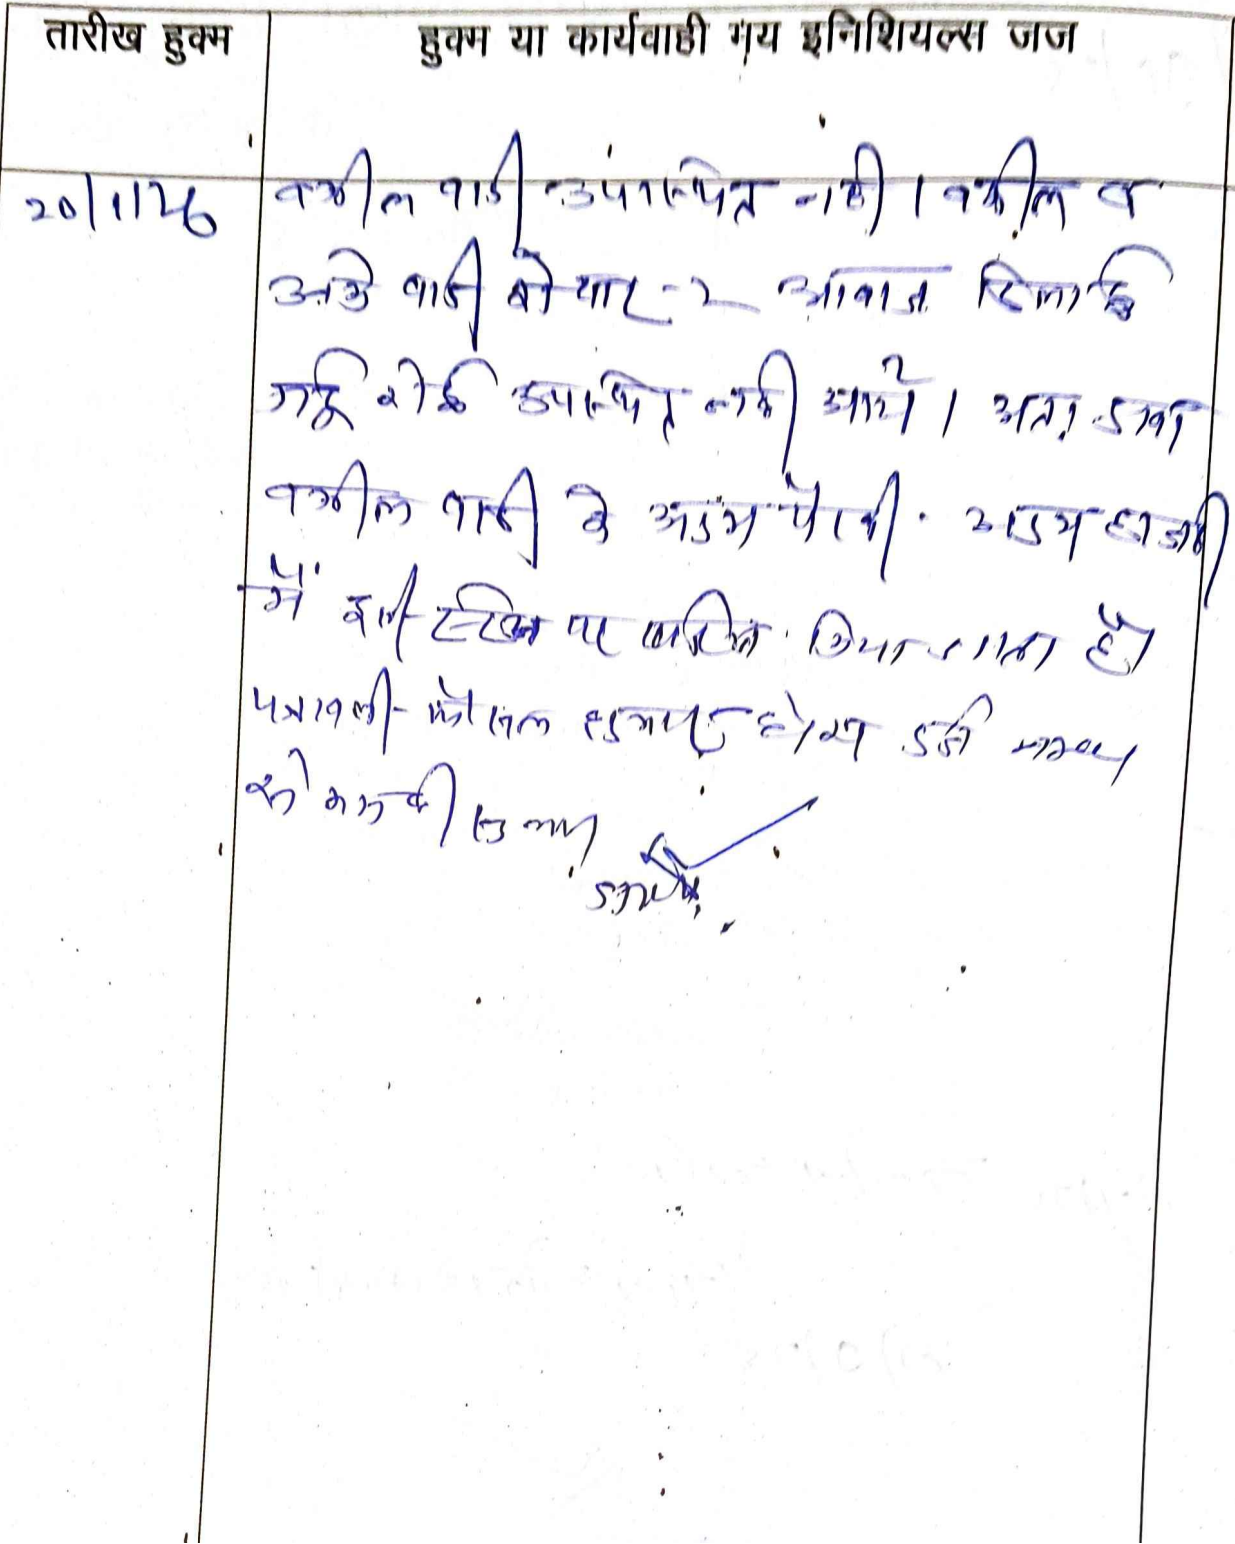 तारीख हुक्म
हुक्म या कार्यवाही मय इनिशियल्स जज
20/1/26
वकील वादी उपस्थित नही । वकील व
वादी को बार-2 आवाज दिलाई
गई कोई उपस्थित नही आये । अतः दावा
वकील वादी के अदम पैरवी अदम हाजरी
में इसी स्टेज पर खारिज किया जाता है।
पत्रावली फैसल शुमार होकर नम्बर
से कम की जावे।